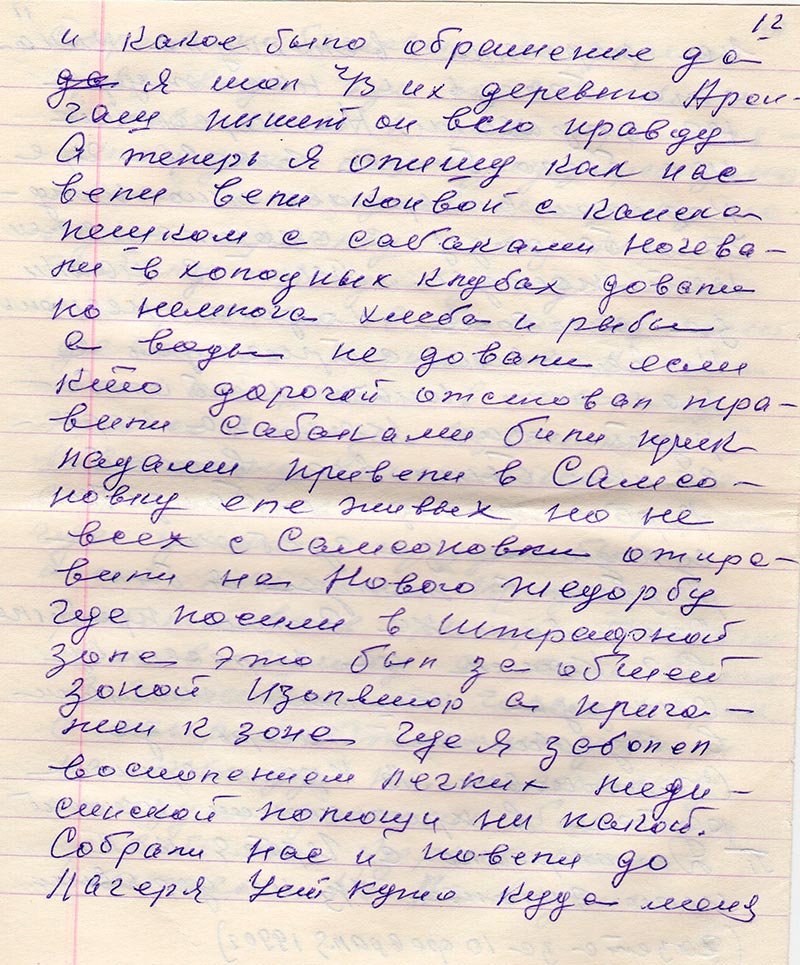 12
и какое было обращение да
да я шол ч/з их деревню Арон-
гаш пишет он всю правду
А теперь я опишу как нас
вели вели конвой с канска
пешком с сабаками ночева-
ли в холодных клубах довали
но немнога хлеба и рыбы
а воды не довали если
кто дорогой отставал тра-
вили сабаками били прик-
ладами привели в Самсо-
новку еле живых но не
всех с Самсоновки отпра-
вили на Нового
где посили в штрафной
зоне это был за обшей
зоной Изолятор а прига-
ли к зоне где я заболел
воспопением легких меди-
синской помощи ни какой.
Собрали нас и повели до
Лагеря куда меня